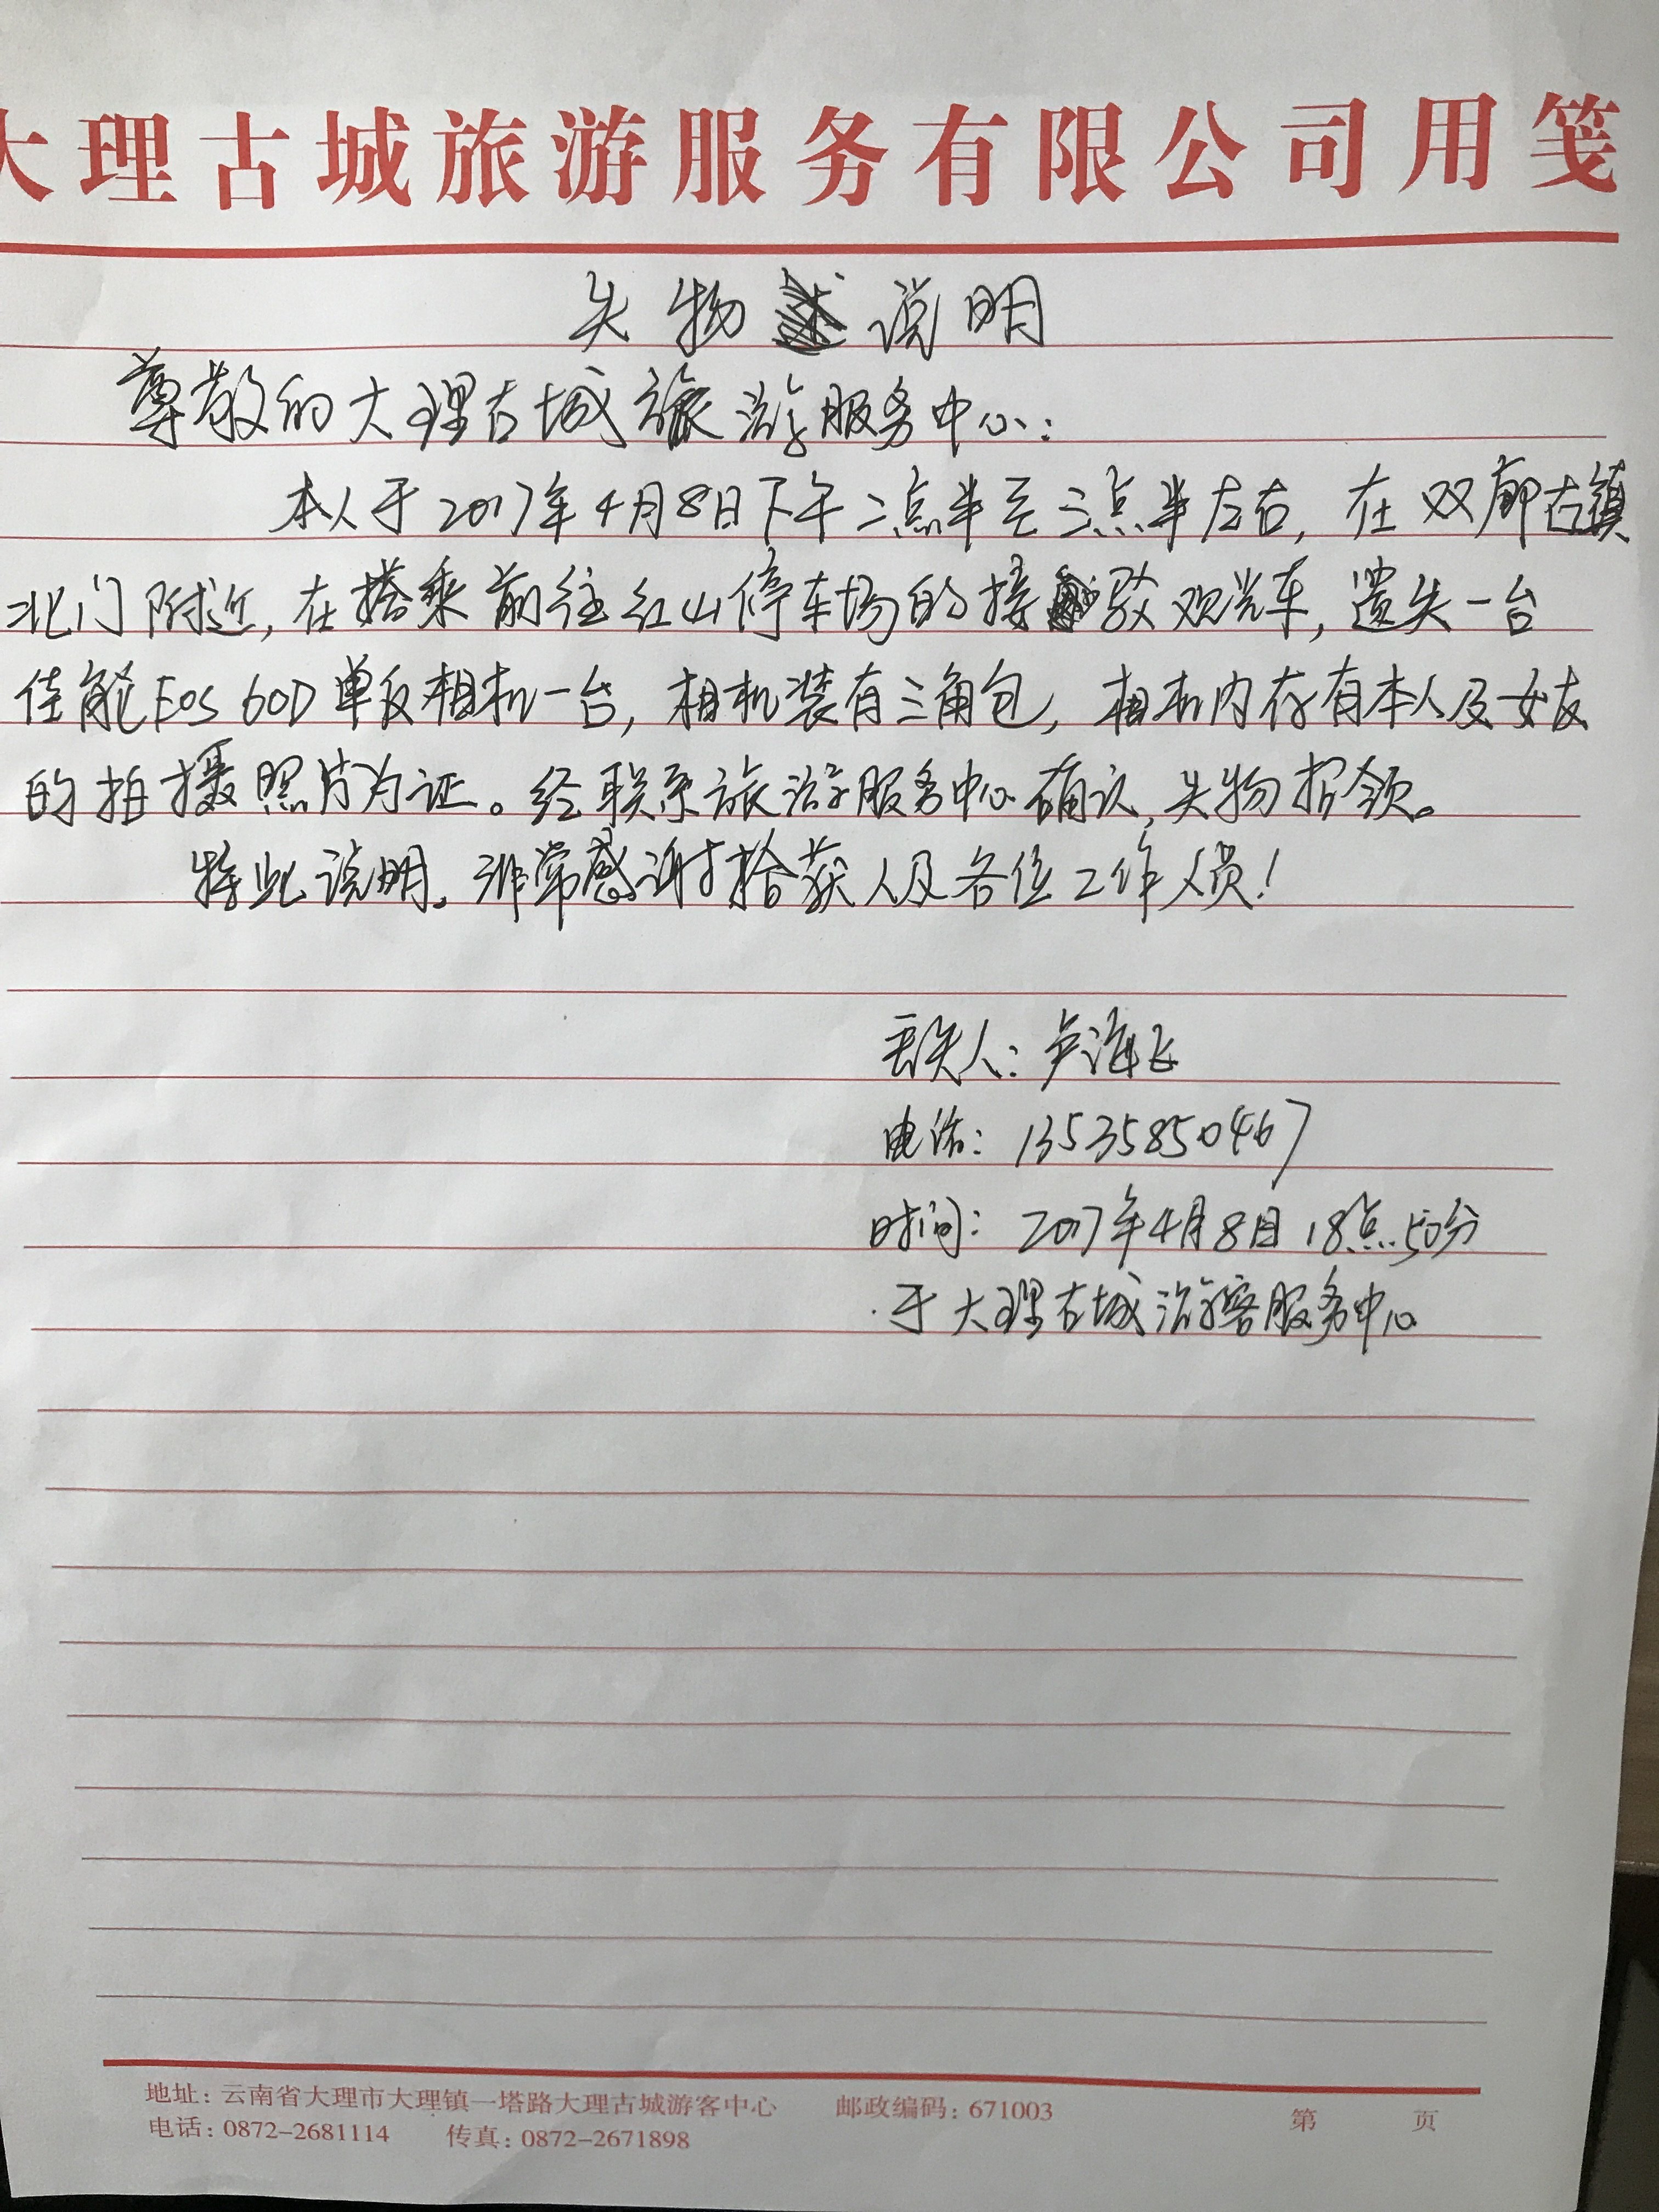 大理古城旅游服务有限公司用笺
失物说明
尊敬的大理古城旅游服务中心：
本人于2017年4月8日下午二点半至三点半左右，在双廊古镇
北门附近，在搭乘前往红山停车场的接驳观光车，遗失一台
佳能EOS 60D单反相机一台，相机装有三角包，相机内存有本人及女友
的拍摄照片为证。经联系旅游服务中心确认，失物招领。
特此说明。非常感谢拾获人及各位工作人员！
丢失人：卢海飞
电话：13535850467
时间：2017年4月8日18点50分
于大理古城游客服务中心
地址：云南省大理市大理镇一塔路大理古城游客中心 邮政编码：671003
电话：0872-2681114 传真：0872-2671898 第 页